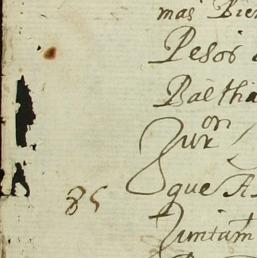 mas Bien
Pesos
Baltha
on
Jur
que A
85
Juntam